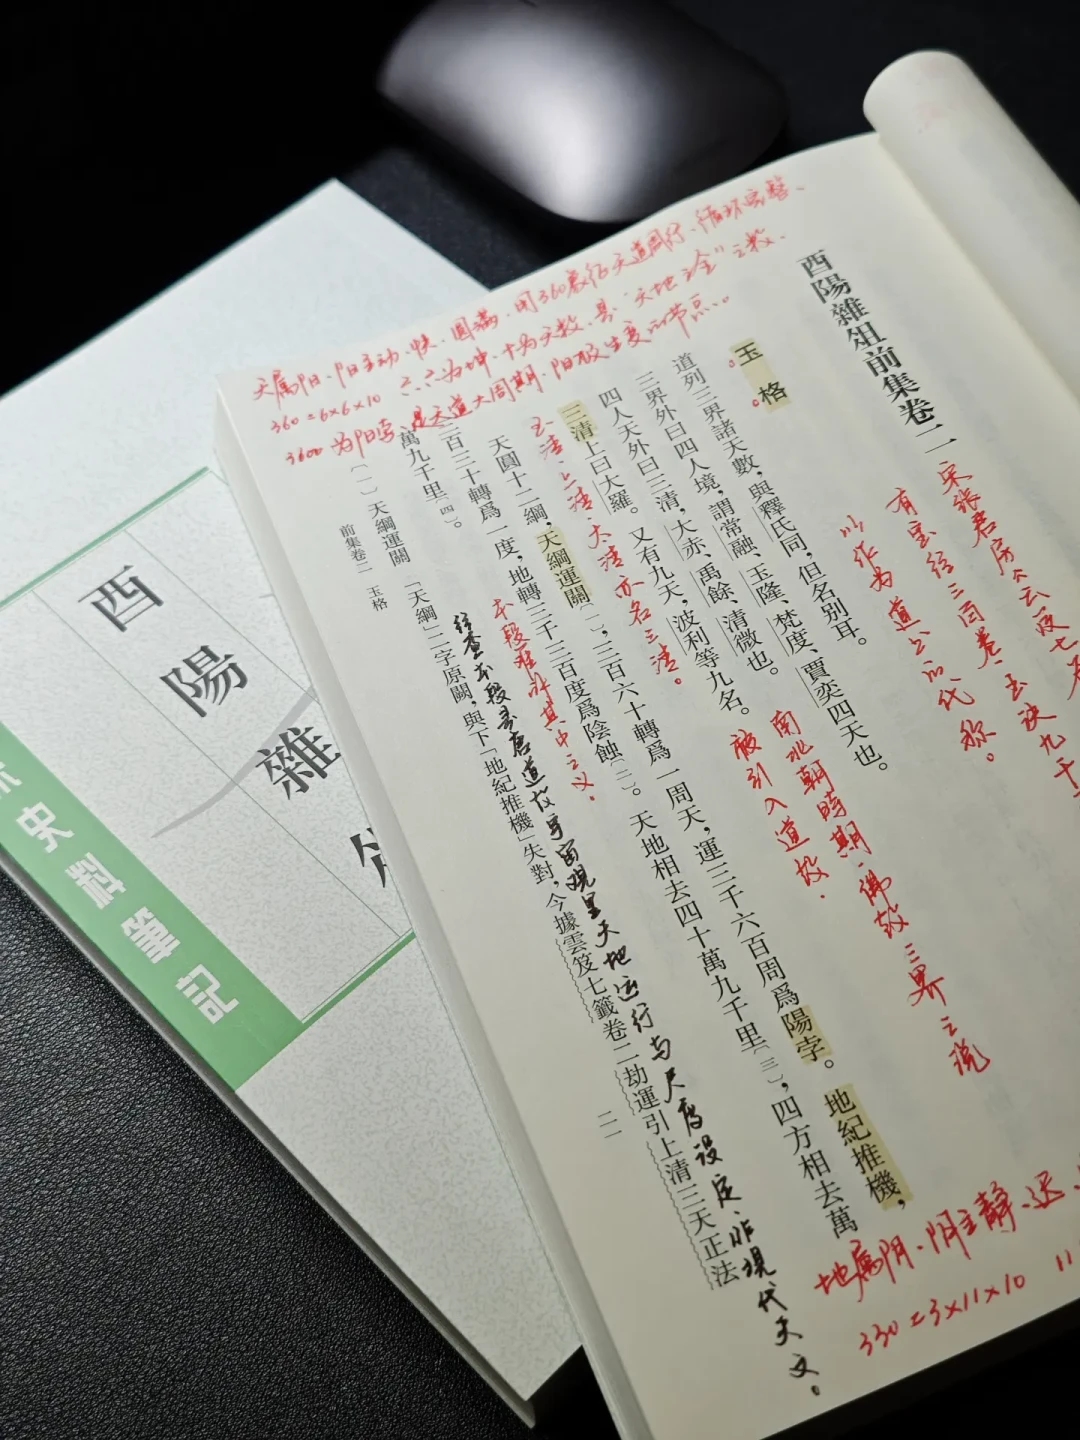 酉陽雜俎前集卷二
玉格
道列三界諸天數，與釋氏同，但名別耳。
三界外曰四人境，謂常融、玉隆、梵度、賈奕四天也。
四人天外曰三清，大赤、禹餘、清微也。
三清上曰大羅。又有九天，波利等九名。
天圓十二綱，天綱運關〔一〕，三百六十轉爲一周天，運三千六百周爲陽孛。地紀推機，
三百三十轉爲一度，地轉三千三百度爲陰蝕〔二〕。天地相去四十萬九千里〔三〕，四方相去萬
萬九千里〔四〕。
〔一〕天綱運關 「天綱」二字原闕，與下「地紀推機」失對，今據雲笈七籤卷二劫運引上清三天正法
前集卷二 玉格
天属阳、阳主动、快、圆满、用360象征天道周行、循环完整、
360=6×6×10 六、六为坤、十为天数、是"天地之全"之数、
3600为阳孛、是天道大周期、阳极生变的节点。
宋张君房《云笈七
有宝经三百卷、玉诀九千
以作为道公的代称。
南北朝時期、佛教三界之说
被引入道教、
玉清、上清、太清亦名三清。
本段难解其中之义、
经查本段是唐道教宇宙观里天地运行与尺度设定、非现代天文。
地属阴、阴主静、迟、
330=3×11×10 11
酉陽雜
史料筆記